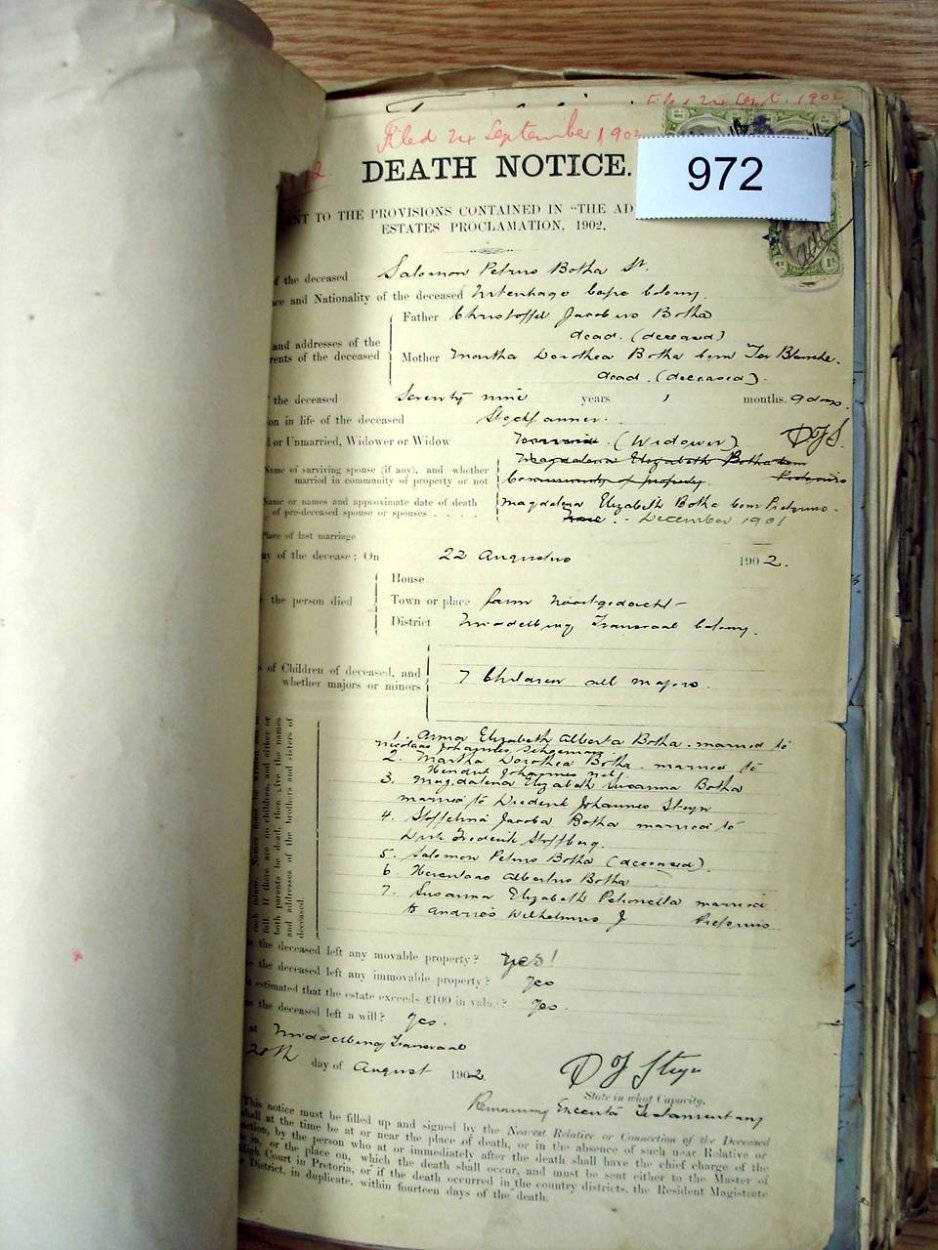 Filed 24 Sept. 1902
Filed 24 September 1902
2
972
DEATH NOTICE.
ANT TO THE PROVISIONS CONTAINED IN "THE AD
ESTATES PROCLAMATION, 1902.
of the deceased Salomon Petrus Botha Sr.
ce and Nationality of the deceased Uitenhage Cape Colony.
Father Christoffel Jacobus Botha
dead. (deceased)
and addresses of the
rents of the deceased
Mother Martha Dorothea Botha born Ter Blanche.
dead. (deceased).
the deceased Seventy nine years 1 months. 9 days.
on in life of the deceased Stockfarmer.
or Unmarried, Widower or Widow (Widower) DJS.
Name of surviving spouse (if any), and whether
married in community of property or not
Magdalena Elizabeth Botha born
Pretorius
Community of property.
Name or names and approximate date of death
of pre-deceased spouse or spouses . . . .
Magdalena Elizabeth Botha born Pretorius.
December 1901
Place of last marriage —
y of the decease: On 22 Augustus 1902.
House
the person died
Town or place farm Nooitgedacht
District Middelburg Transvaal Colony.
s of Children of deceased, and
whether majors or minors
7 Children all majors.
each minor.
full. If there are no children, and either or
both parents be dead, then give the names
and addresses of the brothers and sisters of
deceased.
1. Anna Elizabeth Alberta Botha. married to
Nicolaas Johannes Schoeman.
2. Martha Dorothea Botha. married to
Hendrik Johannes Nel.
3. Magdalena Elizabeth Susanna Botha
married to Diederik Johannes Steyn
4. Stoffelina Jacoba Botha married to
Dirk Frederik Stoffberg.
5. Salomon Petrus Botha (deceased).
6. Hercules Albertus Botha
7. Susanna Elizabeth Petronella married
to Andries Wilhelmus J Pretorius
the deceased left any movable property? Yes!
the deceased left any immovable property? Yes
estimated that the estate exceeds £100 in value? Yes.
the deceased left a will? Yes.
at Middelburg Transvaal
day of August 1902
D J Steyn
State in what Capacity.
Remaining Testamentary
This notice must be filled up and signed by the Nearest Relative or Connection of the Deceased
shall at the time be at or near the place of death, or in the absence of such near Relative or
ction, by the person who at or immediately after the death shall have the chief charge of the
in, or the place on, which the death shall occur, and must be sent either to the Master of
High Court in Pretoria, or if the death occurred in the country districts, the Resident Magistrate
District, in duplicate, within fourteen days of the death.